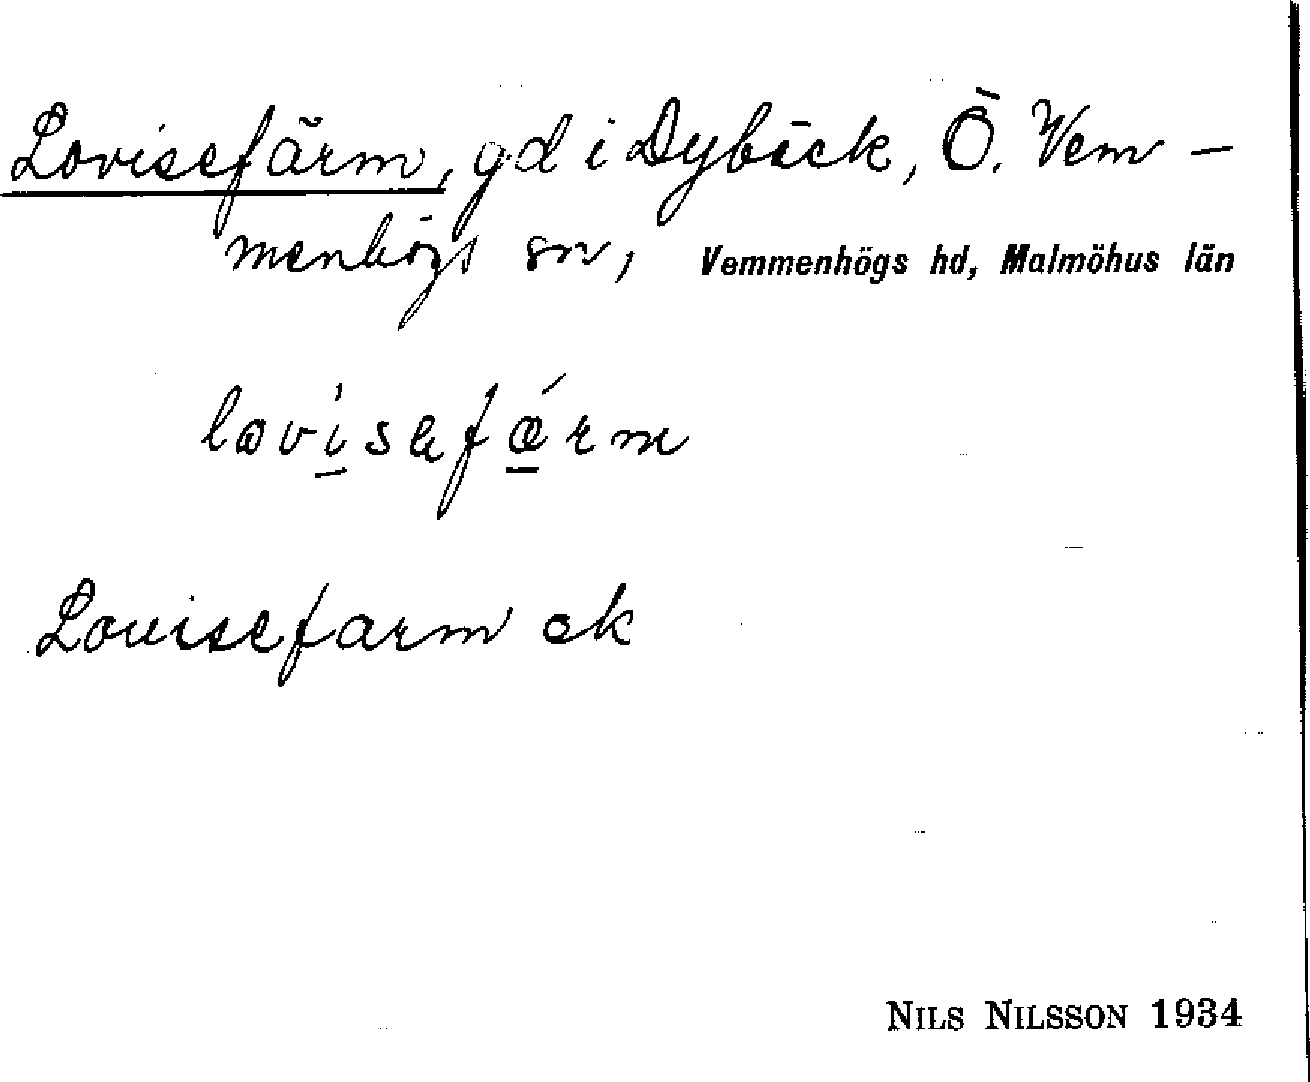 Lovisefärm, gd i Dybäck, Ö. Vem-
menhögs sn, Vemmenhögs hd, Malmöhus län
Louisefarm ek
NILS NILSSON 1934